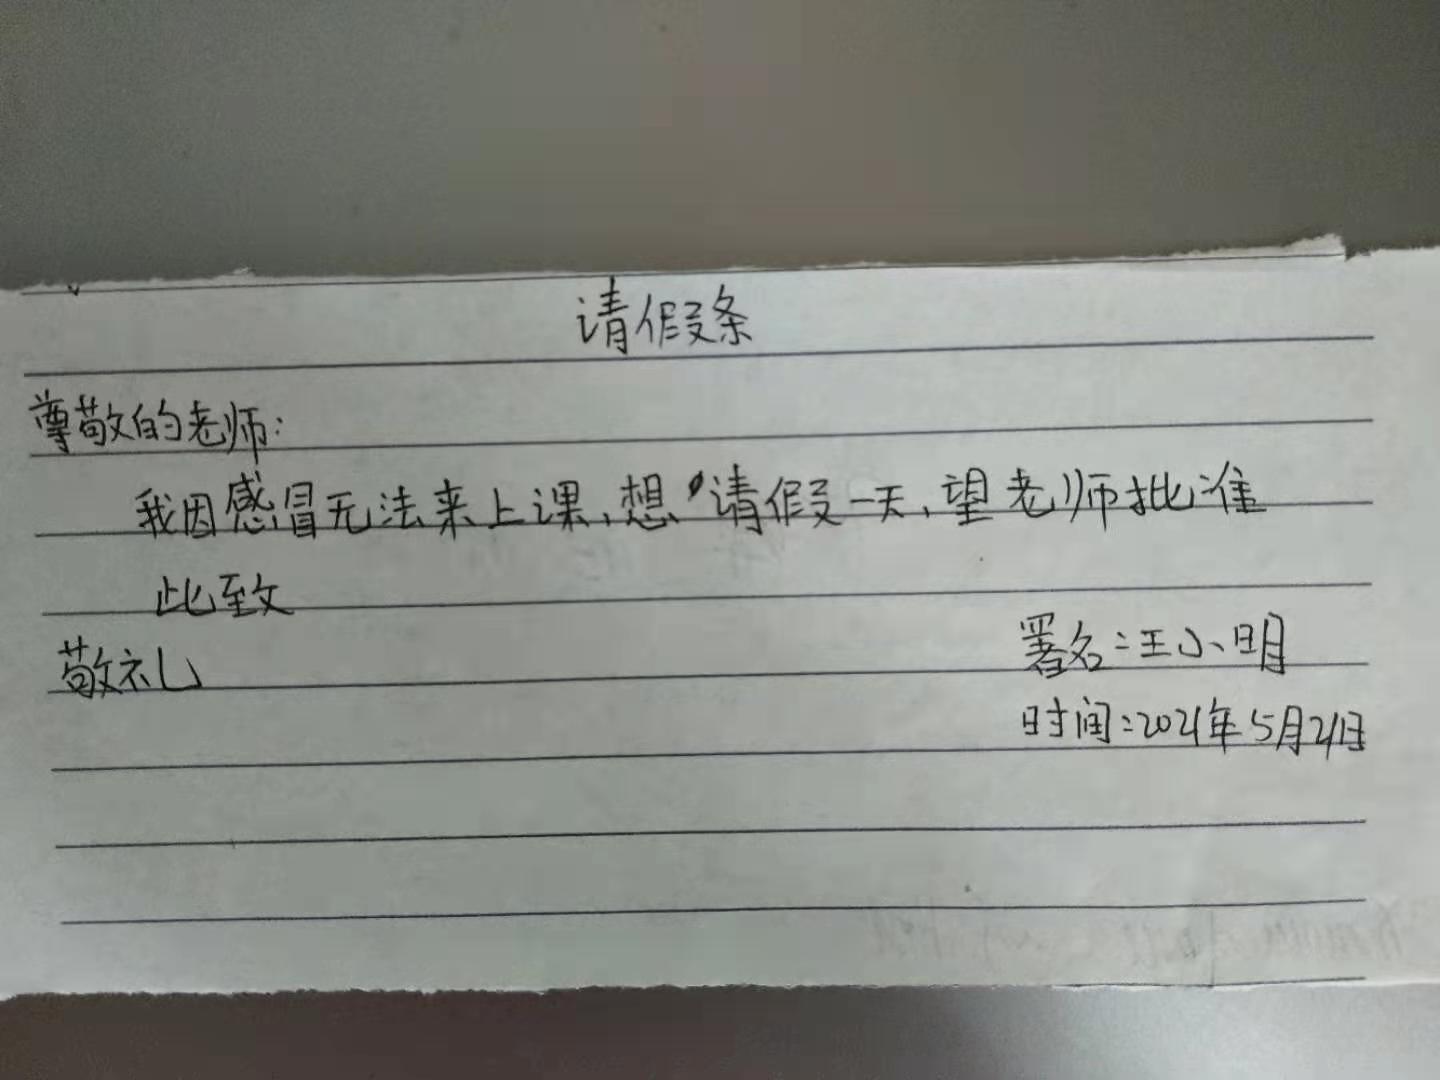 请假条
尊敬的老师:
我因感冒无法来上课,想请假一天,望老师批准
此致
敬礼
署名:王小明
时间:2021年5月21日